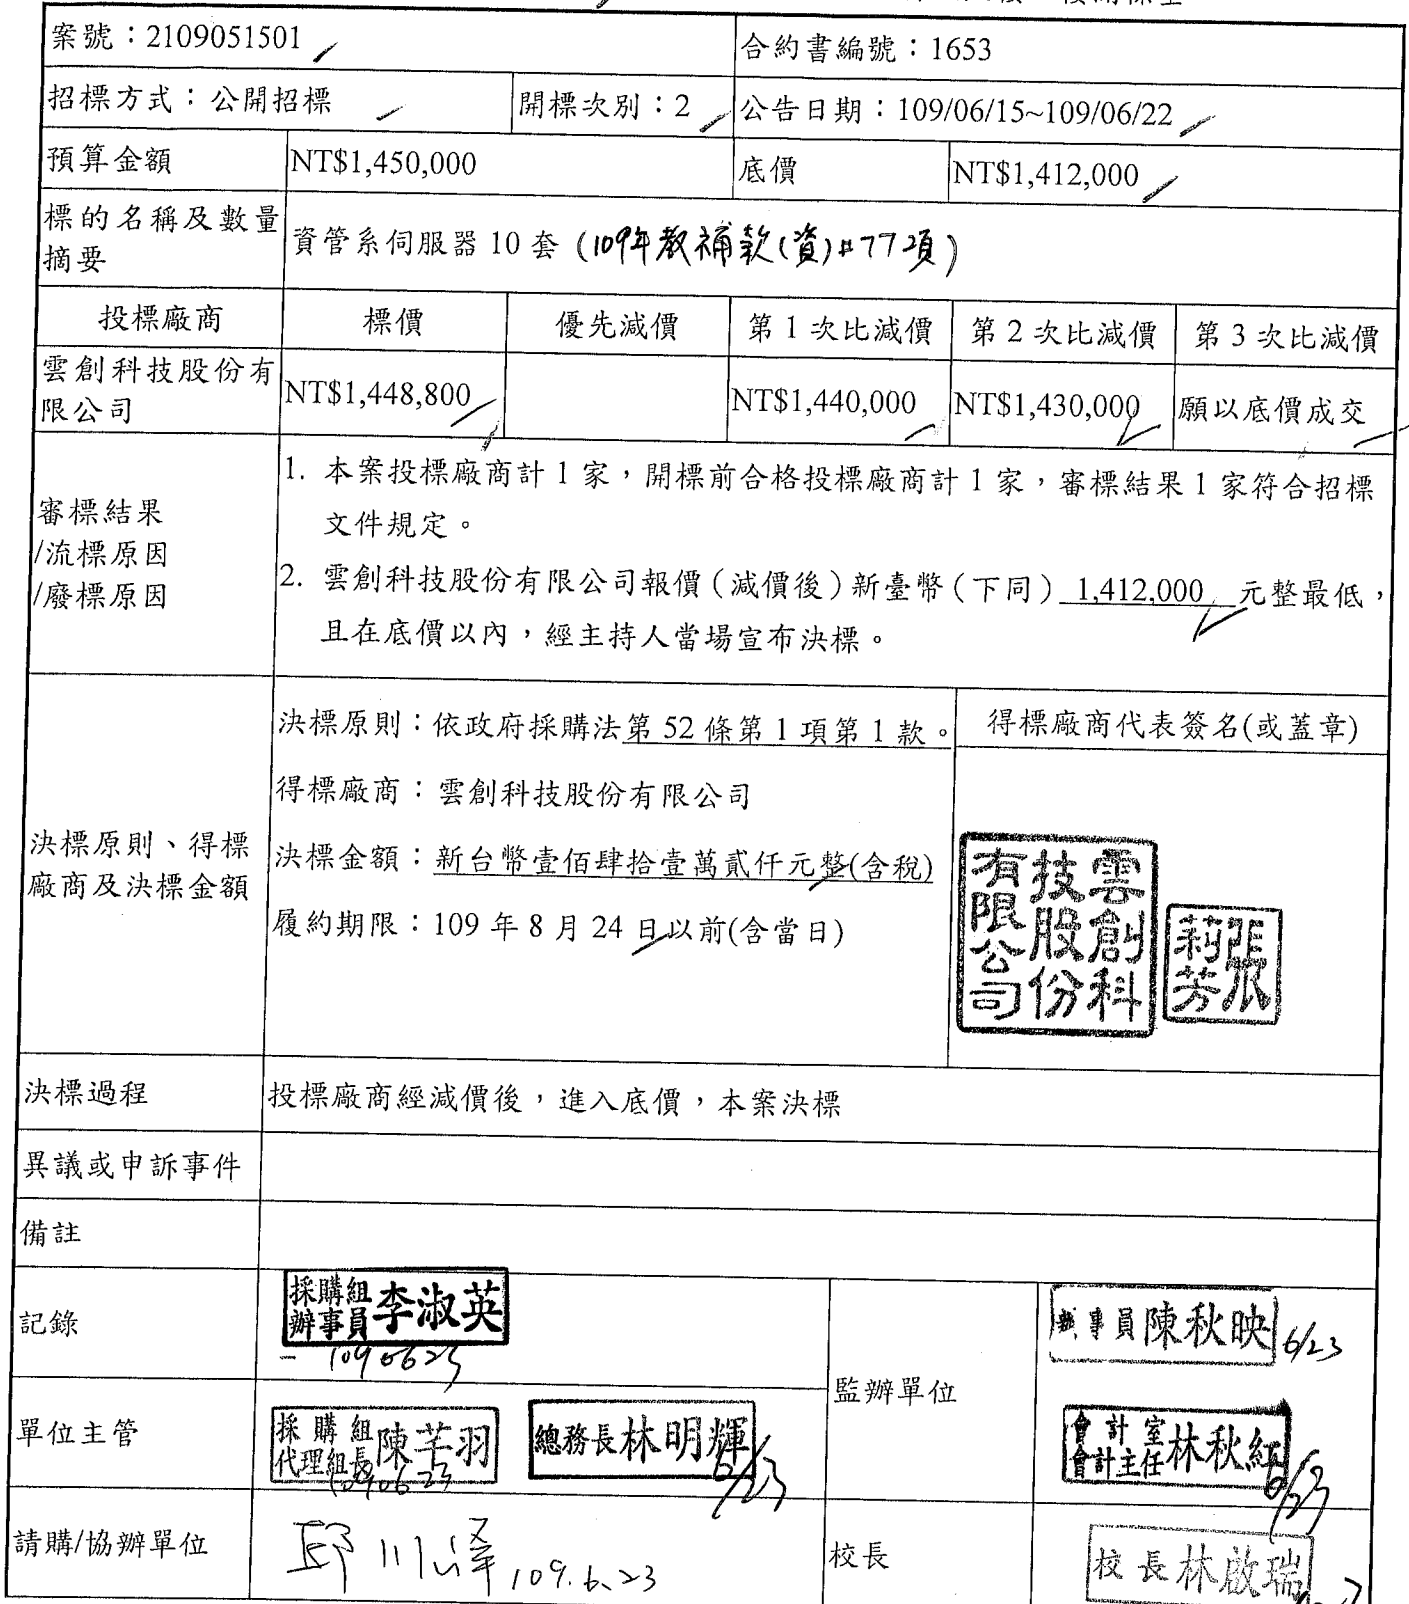 案號：2109051501
合約書編號：1653
招標方式：公開招標
開標次別：2
公告日期：109/06/15~109/06/22
預算金額
NT$1,450,000
底價
NT$1,412,000
標的名稱及數量
摘要
資管系伺服器 10 套 (109年教補款(資)#77項)
投標廠商
標價
優先減價
第 1 次比減價
第 2 次比減價
第 3 次比減價
雲創科技股份有
限公司
NT$1,448,800
NT$1,440,000
NT$1,430,000
願以底價成交
審標結果
/流標原因
/廢標原因
1. 本案投標廠商計 1 家，開標前合格投標廠商計 1 家，審標結果 1 家符合招標
文件規定。
2. 雲創科技股份有限公司報價（減價後）新臺幣（下同） 1,412,000 元整最低，
且在底價以內，經主持人當場宣布決標。
決標原則、得標
廠商及決標金額
決標原則：依政府採購法第 52 條第 1 項第 1 款。
得標廠商：雲創科技股份有限公司
決標金額：新台幣壹佰肆拾壹萬貳仟元整(含稅)
履約期限：109 年 8 月 24 日以前(含當日)
得標廠商代表簽名(或蓋章)
雲創科
技股份
有限公司
張
莉芳
決標過程
投標廠商經減價後，進入底價，本案決標
異議或申訴事件
備註
記錄
採購組
辦事員 李淑英
1090623
監辦單位
辦事員 陳秋映 6/23
單位主管
採購組
代理組長 陳芊羽
1090623
總務長 林明輝
6/23
會計室
會計主任 林秋紅
6/23
請購/協辦單位
邱川澤 109.6.23
校長
校長 林啟瑞